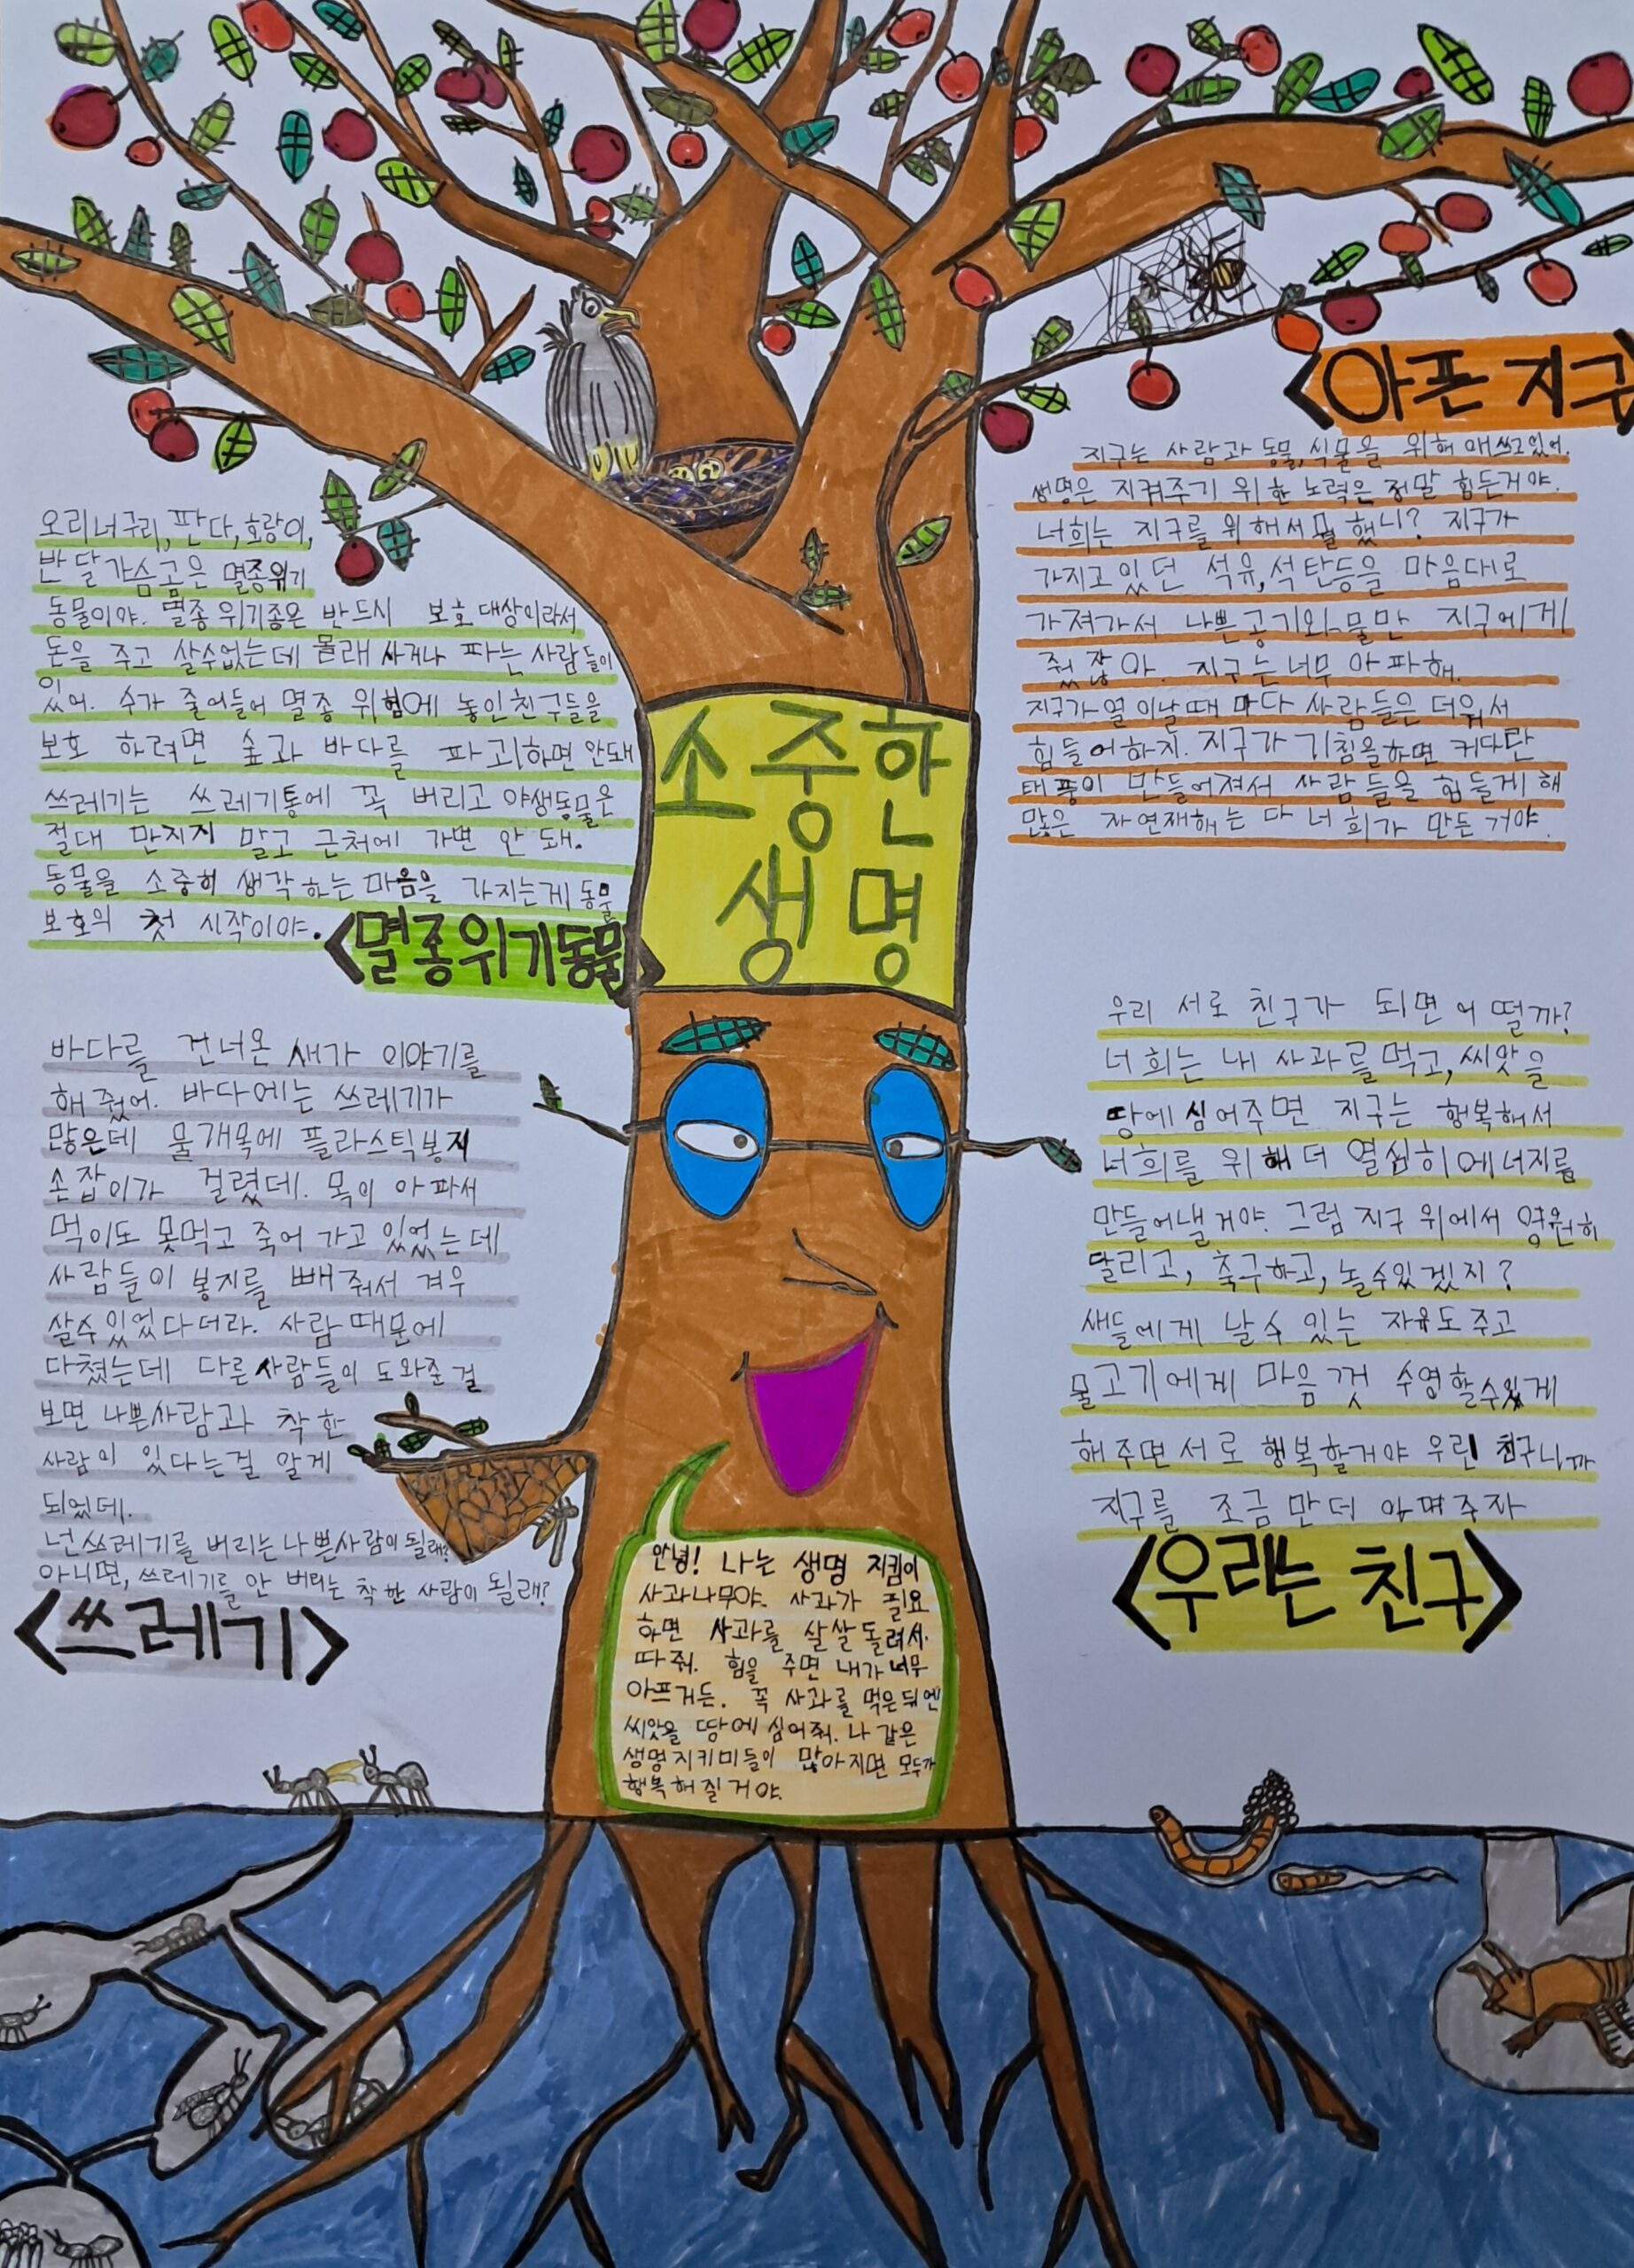 소중한
생명
<아픈 지구
지구는 사람과 동물, 식물을 위해 애쓰고 있어.
생명은 지켜주기 위한 노력은 정말 힘든거야.
너희는 지구를 위해서 뭘 했니? 지구가
가지고 있던 석유, 석탄등을 마음대로
가져가서 나쁜공기와 물만 지구에게
줬잖아. 지구는 너무 아파해.
지구가 열이날때 마다 사람들은 더워서
힘들어하지. 지구가 기침을하면 커다란
태풍이 만들어져서 사람들을 힘들게 해
많은 자연재해는 다 너희가 만든 거야.
오리너구리, 판다, 호랑이,
반달가슴곰은 멸종위기
동물이야. 멸종 위기종은 반드시 보호 대상이라서
돈을 주고 살수없는데 몰래 사거나 파는 사람들이
있어. 수가 줄어들어 멸종 위험에 놓인친구들을
보호 하려면 숲과 바다를 파괴하면 안돼
쓰레기는 쓰레기통에 꼭 버리고 야생동물은
절대 만지지 말고 근처에 가면 안 돼.
동물을 소중히 생각하는 마음을 가지는게 동물
보호의 첫 시작이야.
<멸종위기동물>
바다를 건너온 새가 이야기를
해 줬어. 바다에는 쓰레기가
많은데 물개목에 플라스틱봉지
손잡이가 걸렸데. 목이 아파서
먹이도 못먹고 죽어 가고 있었는데
사람들이 봉지를 빼 줘서 겨우
살수 있었다더라. 사람 때문에
다쳤는데 다른 사람들이 도와준 걸
보면 나쁜사람과 착한
사람이 있다는걸 알게
되었데.
넌 쓰레기를 버리는 나쁜사람이 될래?
아니면, 쓰레기를 안 버리는 착한 사람이 될래?
<쓰레기>
우리 서로 친구가 되면 어떨까?
너희는 내 사과를 먹고, 씨앗을
땅에 심어주면 지구는 행복해서
너희를 위해 더 열심히 에너지를
만들어낼 거야. 그럼 지구 위에서 영원히
달리고, 축구하고, 놀수있겠지?
새들에게 날 수 있는 자유도 주고
물고기에게 마음껏 수영할수있게
해주면 서로 행복할거야 우린 친구니까
지구를 조금만 더 아껴주자
<우리는 친구>
안녕! 나는 생명 지킴이
사과나무야. 사과가 필요
하면 사과를 살살 돌려서
따 줘. 힘을 주면 내가 너무
아프거든. 꼭 사과를 먹은뒤엔
씨앗을 땅에 심어줘. 나 같은
생명지키미들이 많아지면 모두가
행복해질거야.